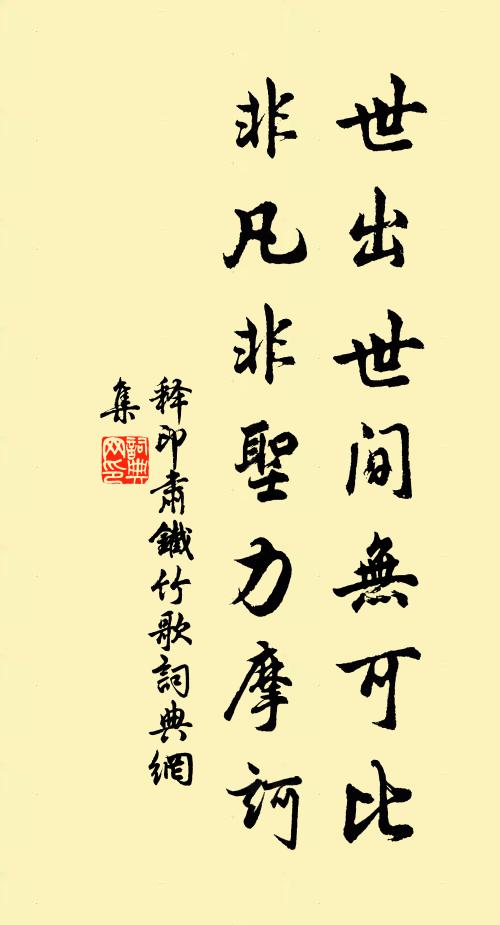 世出世間無可比
非凡非聖力摩訶
释印肅鐵竹歌詞典網
集
詞典
网印